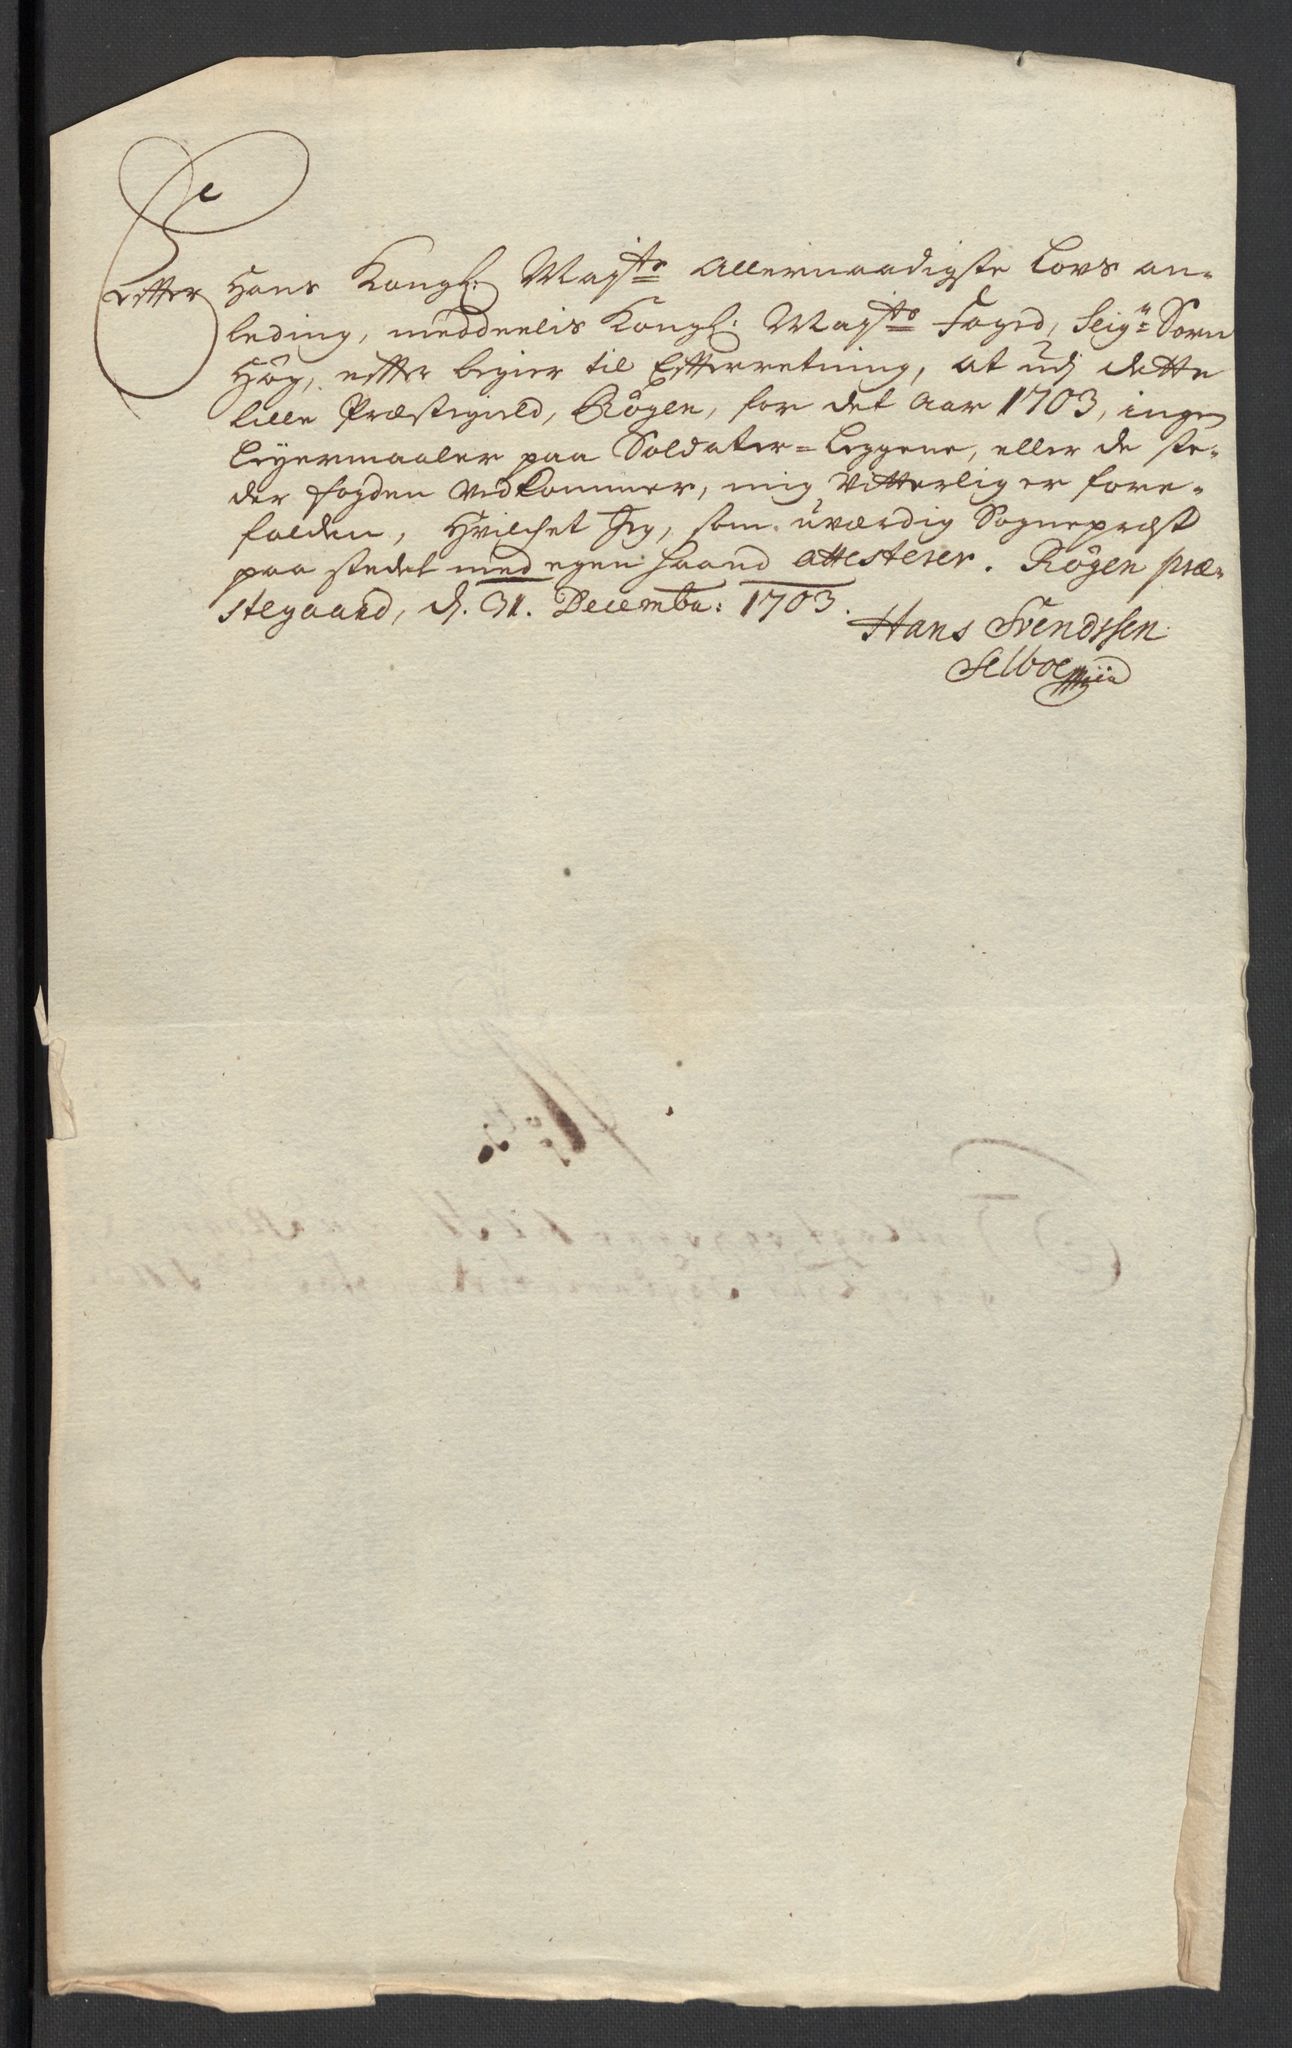 Efftter Hans Kongl: Maÿts Allernaadigste Lovs an-
leding, meddeelis Kongl: Maÿts Foged, Seigr Sørn
Høg, efftter begier til Efftterretning, at udj dette
lille Præstegield, Røgen, for det Aar 1703, ingen
Leÿermaaler paa Soldater-Leggene, eller de ste-
der fogden vedkommer, mig vitterlig er fore-
falden, Hvilchet Jeg, som uværdig Sognepræst
paa stedet med egen haand attesterer. Røgen præ-
stegaard, d. 31. Decembr: 1703.
Hans Svendssen
Selboe